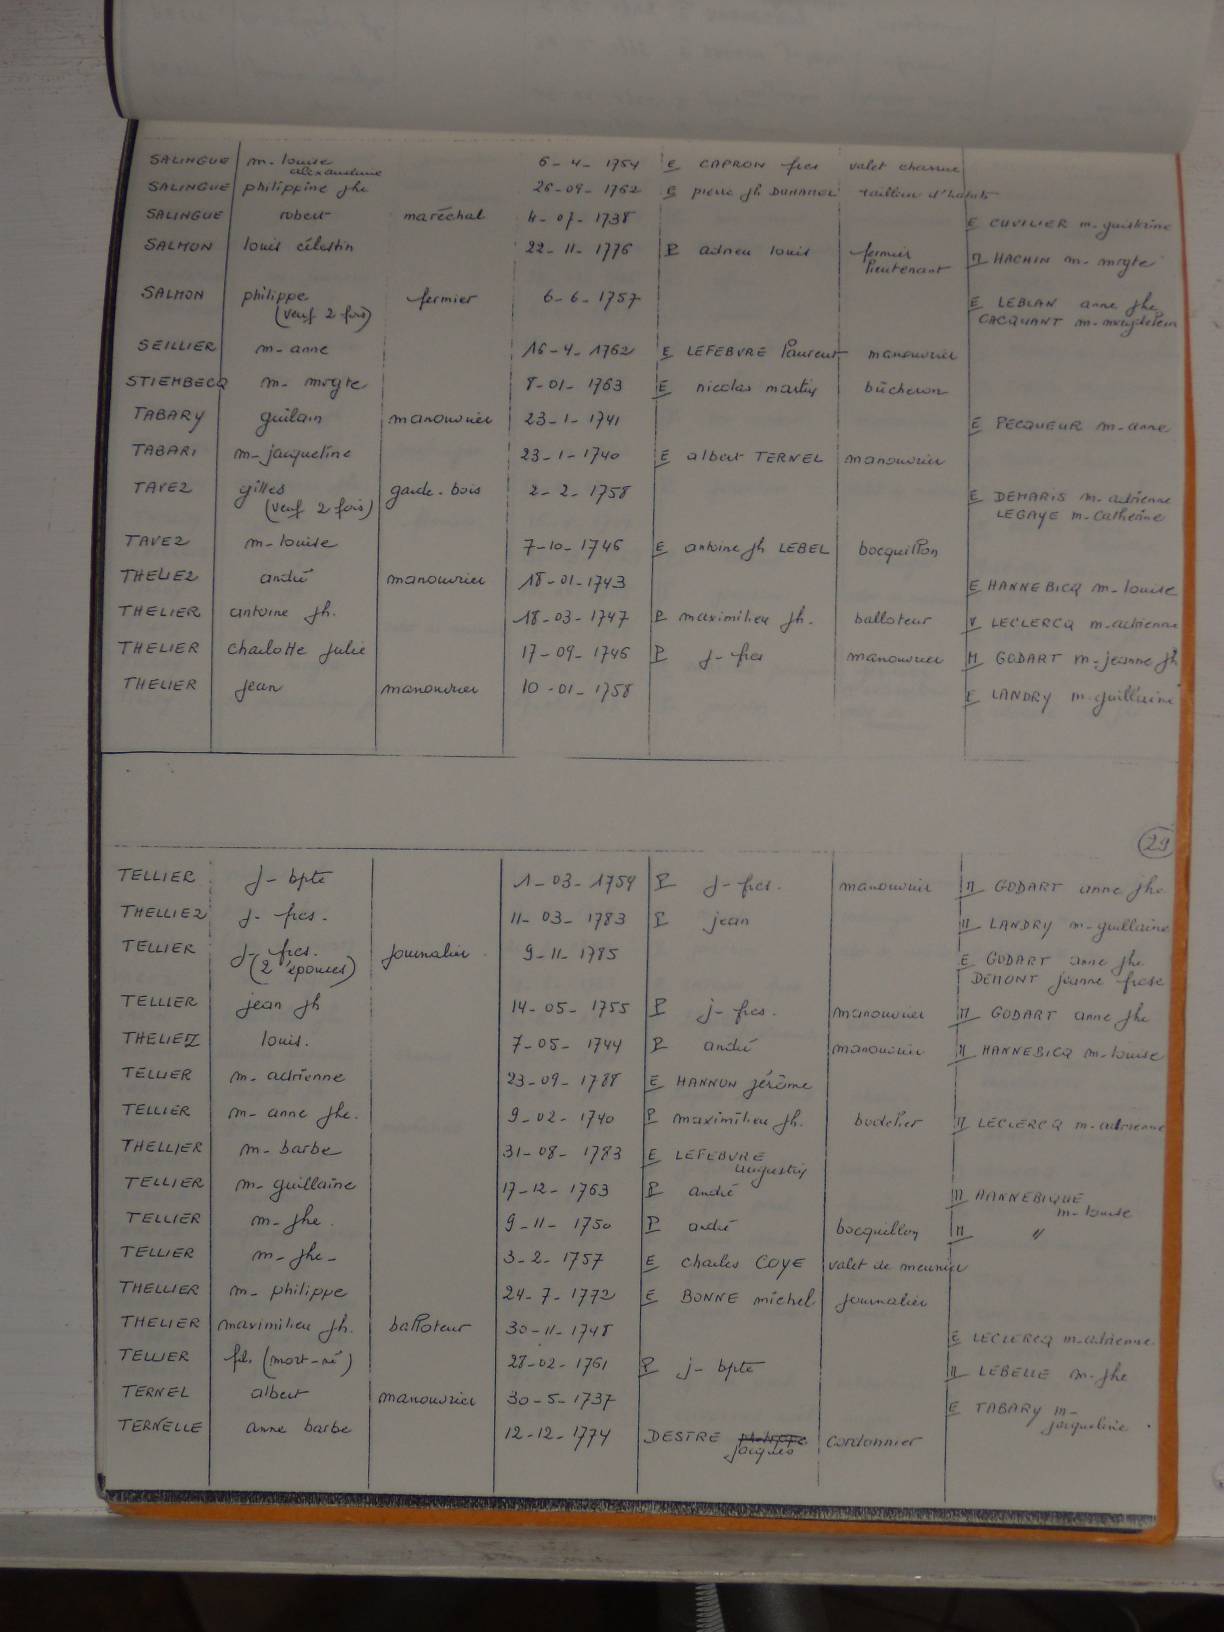 SALINGUE m-louise alexandrine 6-4-1754 E CAPRON fres valet charrue
SALINGUE philippine jhe 26-09-1762 E pierre jh DUHAMEL tailleur d'habits
SALINGUE robert maréchal 4-07-1738 E CUVILIER m-guislaine
SALMON louis célestin 22-11-1776 P adrien louis fermier lieutenant M HACHIN m-mrgte
SALMON philippe (veuf 2 fois) fermier 6-6-1757 E LEBLAN anne jhe
CACQUANT m-magdeleine
SEILLIER m-anne 16-4-1762 E LEFEBVRE laurent manouvrier
STIEMBECQ m-mrgte 8-01-1763 E nicolas martin bûcheron
TABARY guilain manouvrier 23-1-1741 E PECQUEUR m-anne
TABARI m-jacqueline 23-1-1740 E albert TERNEL manouvrier
TAVEZ gilles (veuf 2 fois) garde-bois 2-2-1758 E DEMARIS m-adrienne
LEGAYE m-catherine
TAVEZ m-louise 7-10-1746 E antoine jh LEBEL bocquillon
THELIEZ andré manouvrier 18-01-1743 E HANNEBICQ m-louise
THELIER antoine jh. 18-03-1747 P maximilien jh. balloteur V LECLERCQ m-adrienne
THELIER charlotte julie 17-09-1746 P j-fres manouvrier M GODART m-jeanne jh
THELIER jean manouvrier 10-01-1758 E LANDRY m-guillaine
29
TELLIER j-bpte 1-03-1754 P j-fres. manouvrier M GODART anne jhe
THELLIEZ j-fres. 11-03-1783 P jean M LANDRY m-guillaine
TELLIER j-fres. (2 épouses) journalier 9-11-1785 E GODART anne jhe
DEMONT jeanne frese
TELLIER jean jh 14-05-1755 P j-fres. manouvrier M GODART anne jhe
THELIEZ louis. 7-05-1744 P andré manouvrier M HANNEBICQ m-louise
TELLIER m-adrienne 23-09-1788 E HANNON jérôme
TELLIER m-anne jhe. 9-02-1740 P maximilien jh. M LECLERCQ m-adrienne
THELLIER m-barbe 31-08-1783 E LEFEBVRE augustin
TELLIER m-guillaine 17-12-1763 P andré M HANNEBIQUE m-louise
TELLIER m-jhe. 9-11-1750 P andré bocquillon M "
TELLIER m-jhe- 3-2-1757 E charles COYE valet de meunier
THELLIER m-philippe 24-7-1772 E BONNE michel journalier
THELIER maximilien jh. balloteur 30-11-1748 E LECLERCQ m-adrienne
TELLIER fils (mort-né) 28-02-1761 P j-bpte M LEBELLE m-jhe
TERNEL albert manouvrier 30-5-1737 E TABARY m-jacqueline
TERNELLE anne barbe 12-12-1774 DESTRE jacques cordonnier